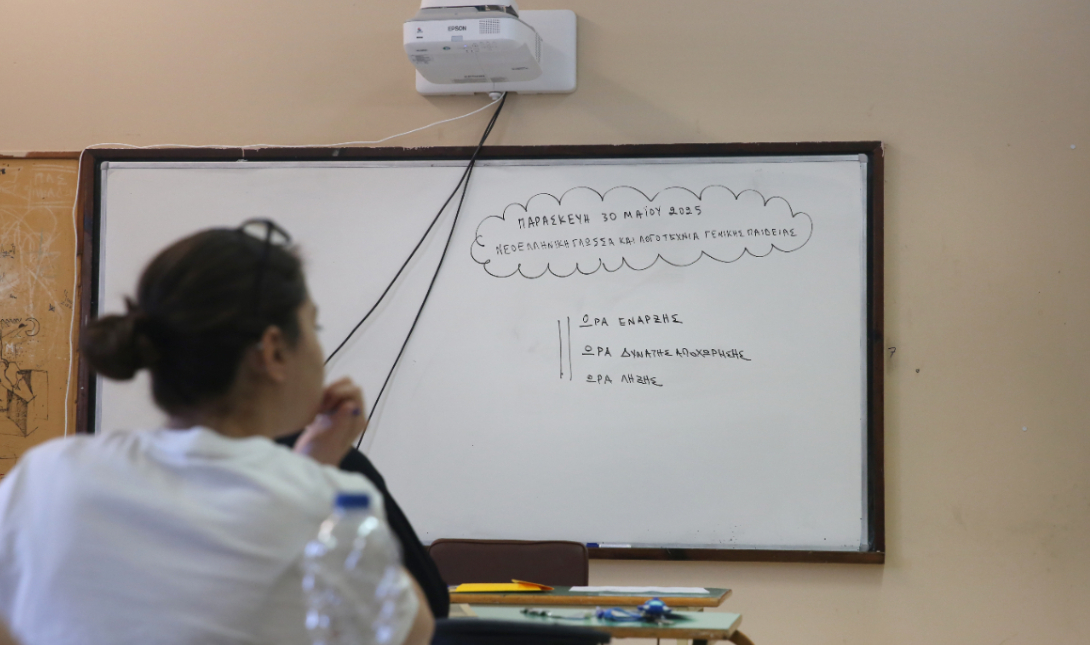 EPSON
ΠΑΡΑΣΚΕΥΗ 30 ΜΑΪΟΥ 2025
ΝΕΟΕΛΛΗΝΙΚΗ ΓΛΩΣΣΑ ΚΑΙ ΛΟΓΟΤΕΧΝΙΑ ΓΕΝΙΚΗΣ ΠΑΙΔΕΙΑΣ
ΩΡΑ ΕΝΑΡΞΗΣ
ΩΡΑ ΔΥΝΑΤΗΣ ΑΠΟΧΩΡΗΣΗΣ
ΩΡΑ ΛΗΞΗΣ